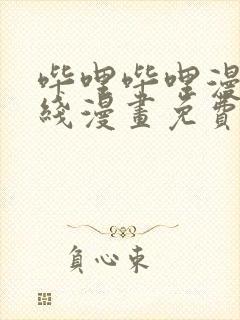 哔哩哔哩漫
綫漫畫免費
負心束